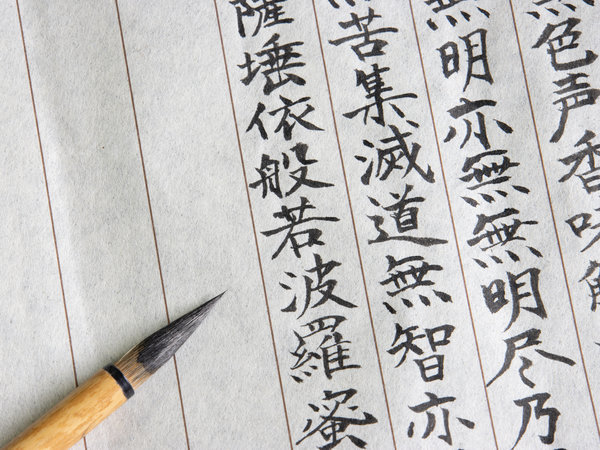 無色声香味触
無明亦無無明尽乃
苦集滅道無智亦
薩埵依般若波羅蜜